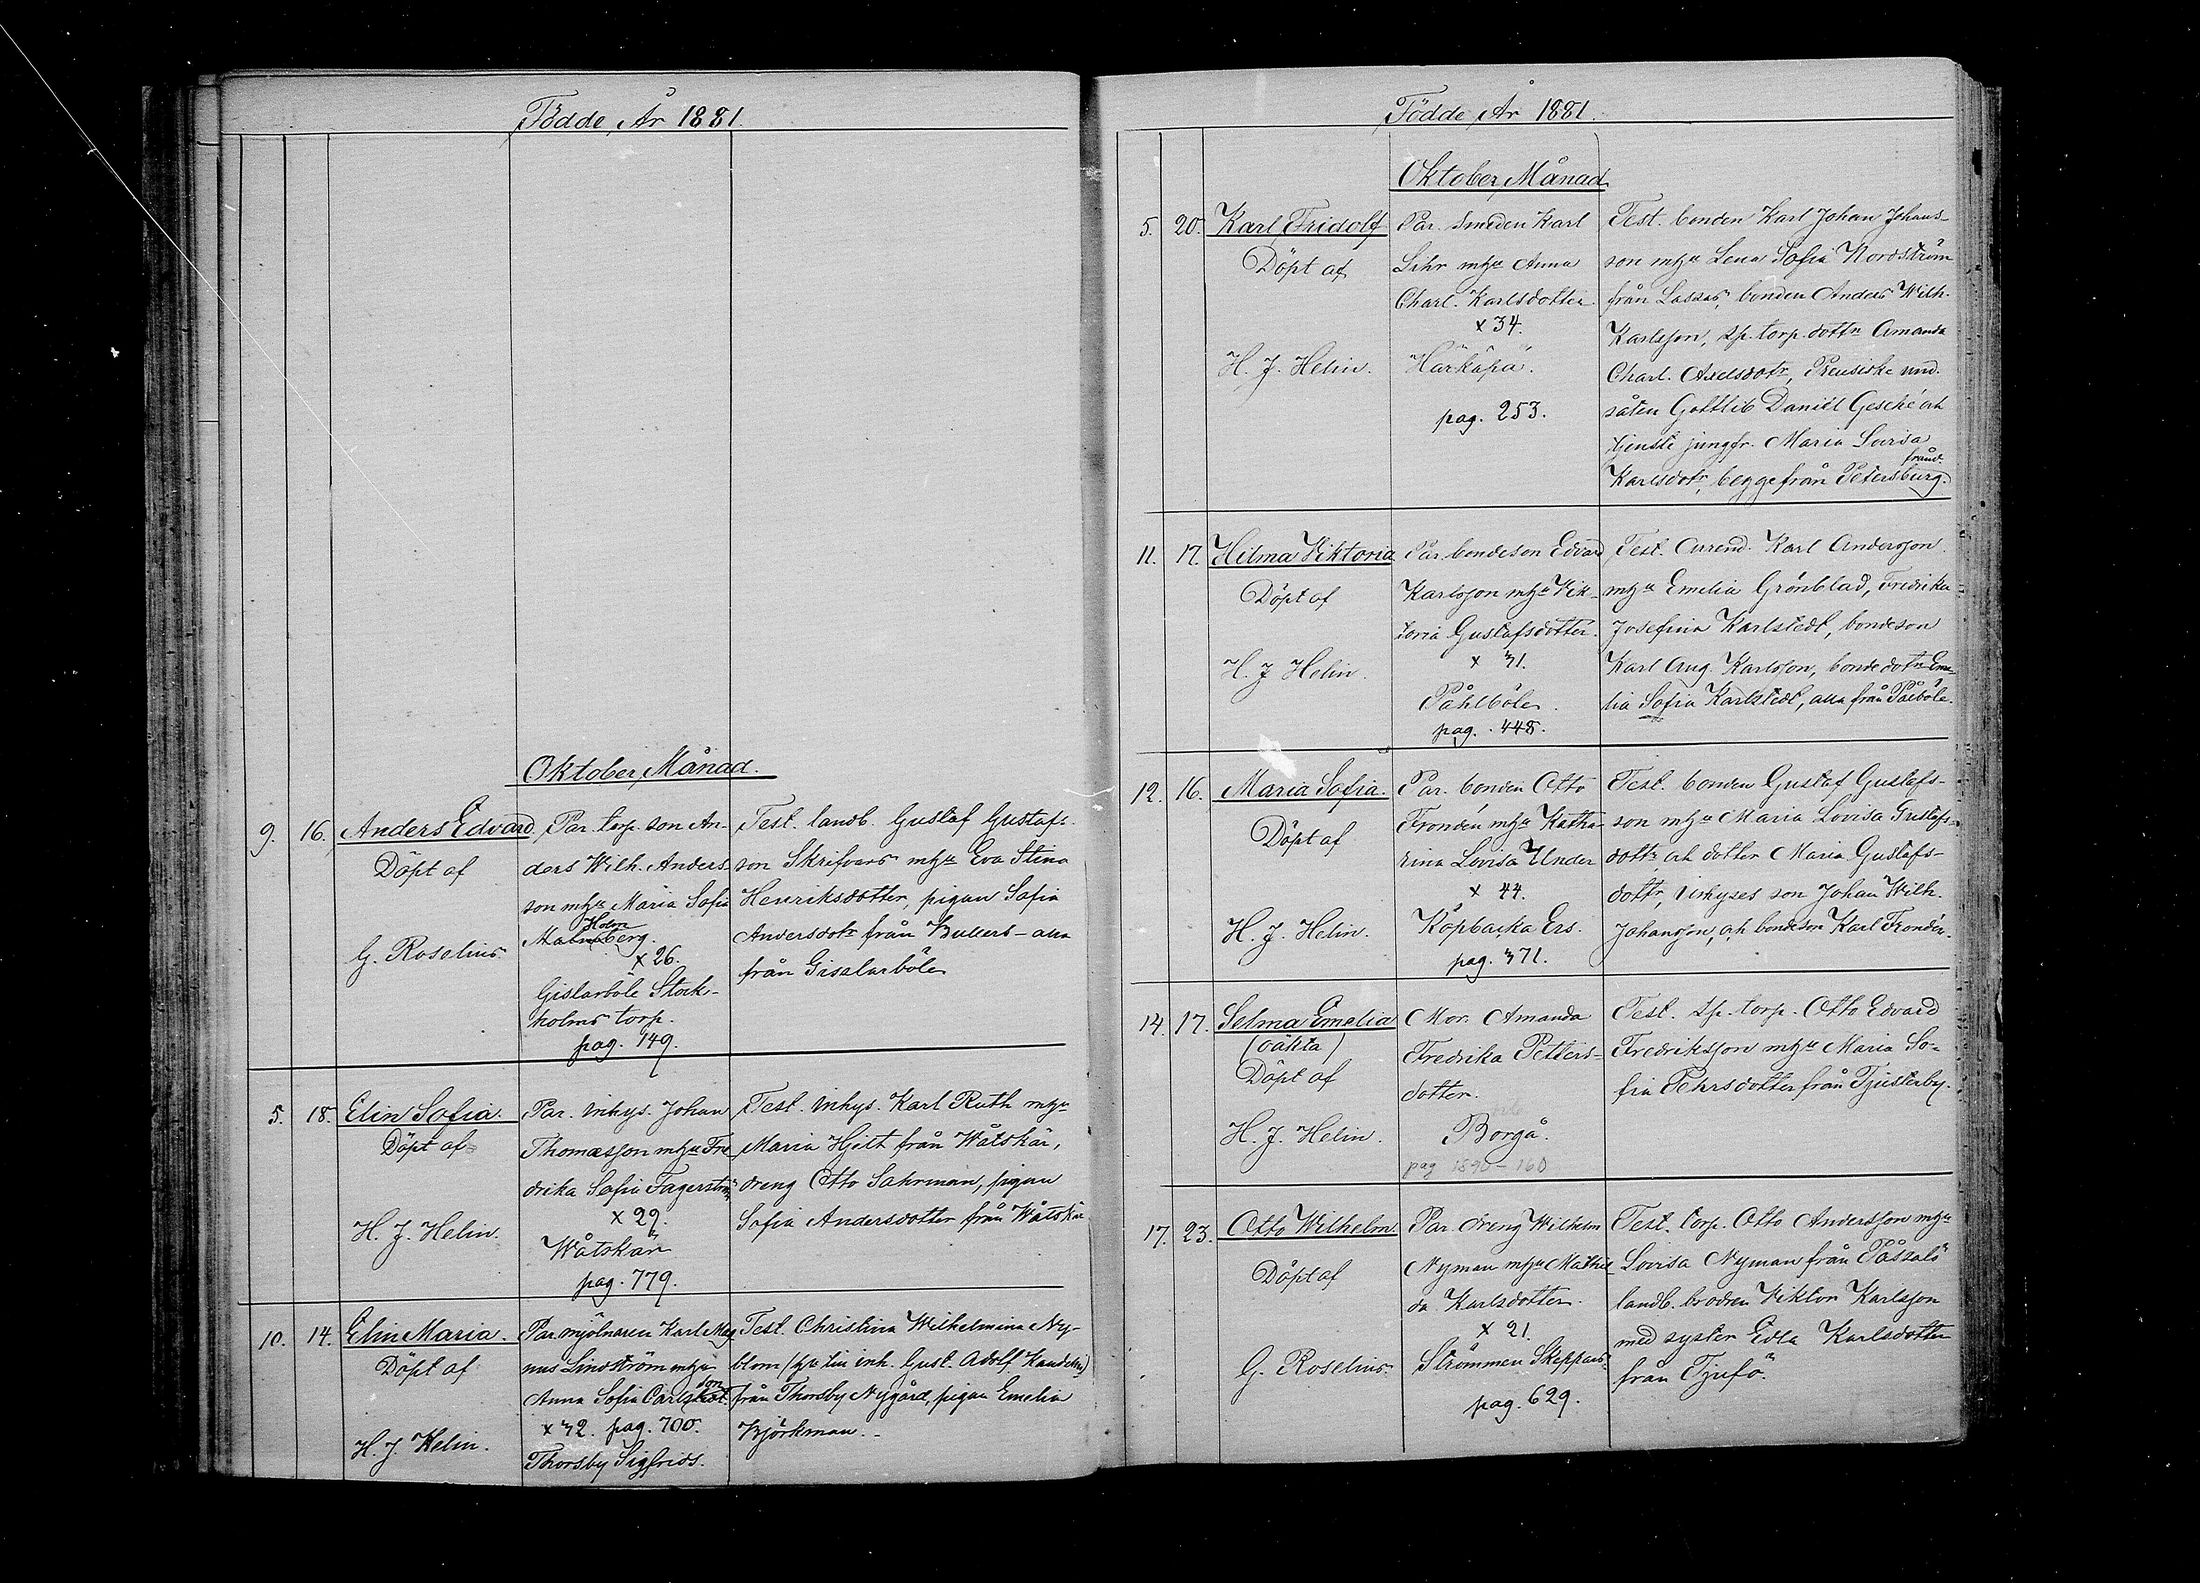 Födde År 1881.
Oktober Månad.
9. 16. Anders Edvard
Döpt af
G. Roselius
Par. torp. son An-
ders Wilh. Anders-
son mhu Maria Sofia
Holm
Malmberg.
x 26.
Gislarböle Stock-
holms torp.
pag. 149.
Test. landb. Gustaf Gustafs-
son Skrifvars mhu Eva Stina
Henriksdotter, pigan Sofia
Andersdotr från Bullers - alla
från Gisslarböle
5. 18. Elin Sofia
Döpt af
H. J. Helin.
Par. inhys. Johan
Thomasson mhu Fre
drika Sofia Fagerström
x 29.
Wåtskär
pag. 779.
Test. inhys. Karl Ruth mhu
Maria Hjelt från Wåtskär,
dreng Otto Sahrman, pigan
Sofia Andersdotter från Wåtskär
10. 14. Elin Maria.
Döpt af
H. J. Helin.
Par. mjölnaren Karl Mag
nus Lindström mhu
Anna Sofia Carls
son
x 32. pag. 700.
Thorsby Sigfrids.
Test. Christina Wilhelmina Ny-
blom (hu till inh. Gust. Adolf Kandelin)
från Thorsby Nygård, pigan Emelia
Björkman.
Födde År 1881.
Oktober Månad
5. 20. Karl Fridolf
Döpt af
H. J. Helin.
Par. Smeden Karl
Lihr mhu Anna
Charl. Karlsdotter
x 34.
Härkäpä.
pag. 253.
Test. bonden Karl Johan Johans-
son mhu Lena Sofia Nordström
från Lassas, bonden Anders Wilh.
Karlsson, sp. torp. dottn Amanda
Charl. Axelsdotr, Preusiske und.
såten Gottlib Daniël Gesché och
tjenste jungfr. Maria Lovisa
Karlsdotr, begge från Petersburg.
11. 17. Hilma Viktoria
Döpt af
H. J. Helin.
Par. bondeson Edvard
Karlsson mhu Vik-
toria Gustafsdotter.
x 31.
Påhlböle
pag. 448.
Test. Arrend. Karl Andersson
mhu Emelia Grönblad, Fredrika
Josefina Karlstedt, bondeson
Karl Aug. Karlsson, bonde dotrn Eme-
lia Sofia Karlstedt, alla från Påeböle.
12. 16. Maria Sofia.
Döpt af
H. J. Helin.
Par. bonden Otto
Frondén mhu Katha-
rina Lovisa Under
x 44.
Köpbacka Ers.
pag. 371.
Test. bonden Gustaf Gustafs-
son mhu Maria Lovisa Gustafs-
dottr och dotter Maria Gustafs-
dottr, inhyses son Johan Wilh.
Johansson, och bondeson Karl Frondén.
14. 17. Selma Emelia
(oäkta)
Döpt af
H. J. Helin.
Mor. Amanda
Fredrika Petters-
dotter.
Borgå.
pag 1890-160
Test. sp. torp. Otto Edvard
Fredriksson mhu Maria So-
fia Pehrsdotter från Tjusterby.
17. 23. Otto Wilhelm
Döpt af
G. Roselius.
Par. dreng Wilhelm
Nyman mhu Mathil
da Karlsdotter.
x 21.
Strömmen Skeppars.
pag. 629.
Test. torp. Otto Andersson mhu
Lovisa Nyman från Påssalö
landb. brodren Viktor Karlsson
med syster Edla Karlsdotter
från Tjufö.